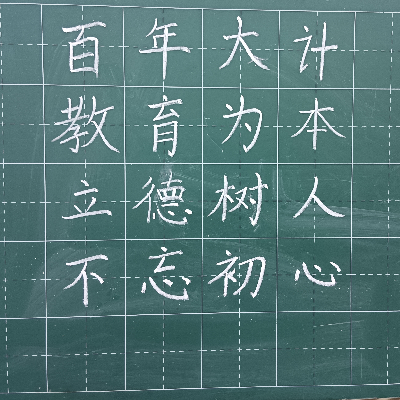 百年大计
教育为本
立德树人
不忘初心